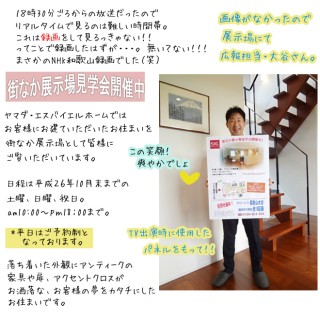 18時30分ごろからの放送だったので
リアルタイムで見るのは難しい時間帯。
これは録画をして見るっきゃない!!
ってことで録画したはずが・・・。無い?ない!!!
まさかのNHK和歌山録画でした(笑)
街なか展示場見学会開催中
ヤマダ・エスバイエルホームでは
お客様にお建ていただいたお住まいを
街なか展示場として皆様に
ご覧いただいています。
日程は平成26年10月末までの
土曜、日曜、祝日。
am10:00~pm18:00まで。
*平日はご予約制と
なっております。
落ち着いた外観にアンティークの
家具や扉、アクセントクロスが
お洒落な、お客様の夢をカタチにした
お住まいです。
画像がなかったので
展示場にて
広報担当・大谷さん。
この笑顔!
爽やかでしょ
TV出演時に使用した
パネルをもって!!